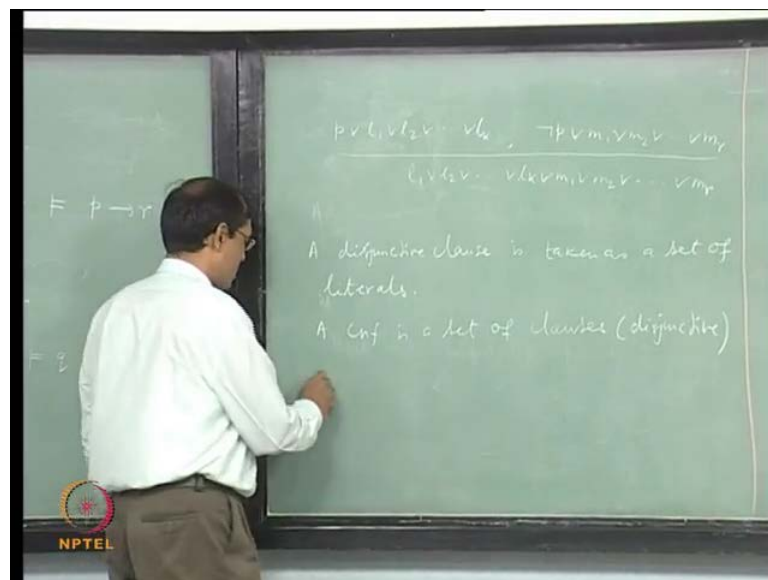 ⊨ p → r
⊨ q
p ∨ l₁ ∨ l₂ ∨ ⋯ ∨ lₖ , ¬p ∨ m₁ ∨ m₂ ∨ ⋯ ∨ mᵣ
l₁ ∨ l₂ ∨ ⋯ ∨ lₖ ∨ m₁ ∨ m₂ ∨ ⋯ ∨ mᵣ
A disjunctive clause is taken as a set of
literals.
A cnf is a set of clauses (disjunctive)
NPTEL